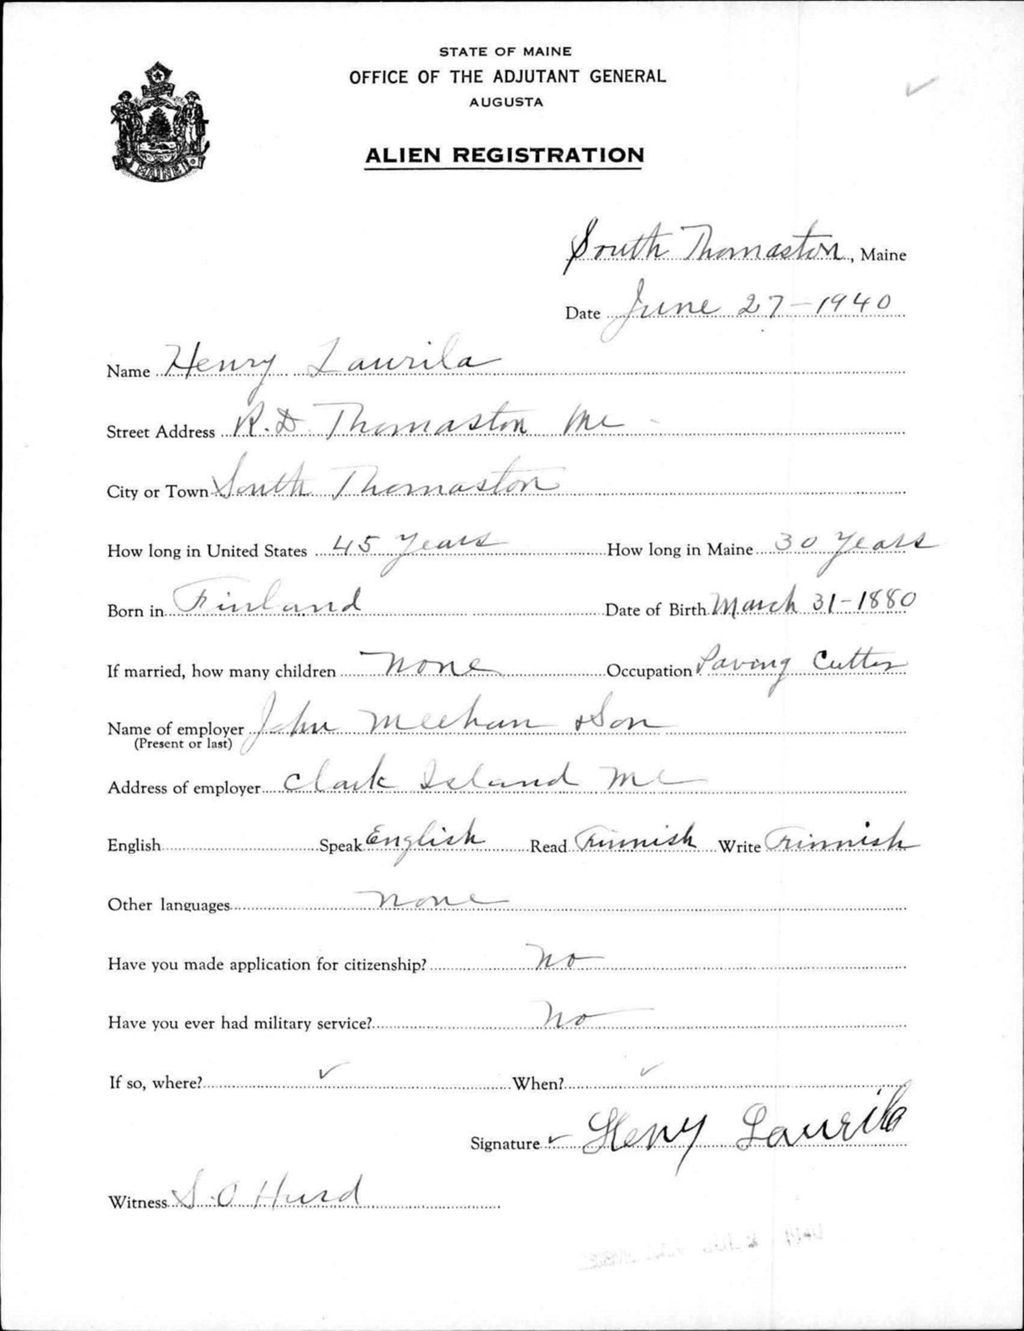 STATE OF MAINE
OFFICE OF THE ADJUTANT GENERAL
AUGUSTA
ALIEN REGISTRATION
MAINE
South Thomaston, Maine
Date June 27-1940
Name Henry Laurila
Street Address R.D. Thomaston Me
City or Town South Thomaston
How long in United States 45 Years How long in Maine 30 Years
Born in Finland Date of Birth March 31-1880
If married, how many children None Occupation Paving Cutter
Name of employer John Meehan & Son
(Present or last)
Address of employer Clark Island Me
English Speak English Read Finnish Write Finnish
Other languages none
Have you made application for citizenship? No
Have you ever had military service? No
If so, where? ✓ When? ✓
Signature ✓ Heny Laurila
Witness S.O Hurd